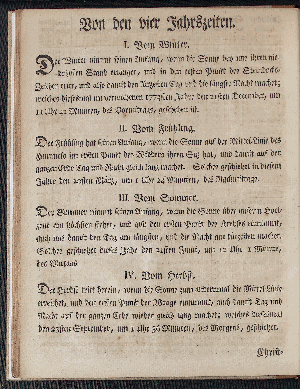 Von den vier Jahrszeiten.
I. Vom Winter.
Der Winter nimmt seinen Anfang, wenn die Sonne bey uns ihren niedrigsten Stand erlanget, und in den ersten Punct des Steinbocks
Zeichen tritt, und also damit den kürzesten Tag und die längste Nacht machet;
welches diesesmal im verwichenen Jahre den 21sten December, um
Minuten, des Vormittags, geschehen ist.
II. Vom Frühling.
Der Frühling hat seinen Anfang, wenn die Sonne auf der Mittel-Linie des
Himmels im ersten Punct des Widders ihren Sitz hat, und damit auf der
ganzen Erde Tag und Nacht gleich lang machet. Solches geschiehet in diesem
Jahre den März, um 1 Uhr 24 Minuten, des Nachmittags.
III. Vom Sommer.
Der Sommer nimmt seinen Anfang, wenn die Sonne über unserm Horizont am höchsten stehet, und auf den ersten Punct des Krebses
auch uns damit den Tag am längsten, und die Nacht am kürzesten machet.
Solches geschiehet dieses Jahr den 21sten Junii, um Uhr Minute,
des Mittags.
IV. Vom Herbst.
Der Herbst tritt herein, wenn die Sonne zum andernmal die Mittel-Linie
erreichet, und den ersten Punct der Waage und damit Tag und
Nacht auf der ganzen Erde wieder gleich lang machet; welches diesesmal
den September, um 1 Uhr 36 Minuten, des Morgens, geschiehet.
Christ-